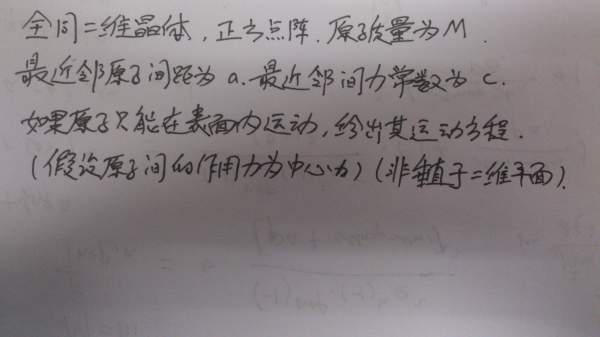 全同二维晶体，正方点阵．原子质量为M．
最近邻原子间距为a．最近邻间力常数为c．
如果原子只能在表面内运动，给出其运动方程．
（假设原子间的作用力为中心力）（非垂直于二维平面）．